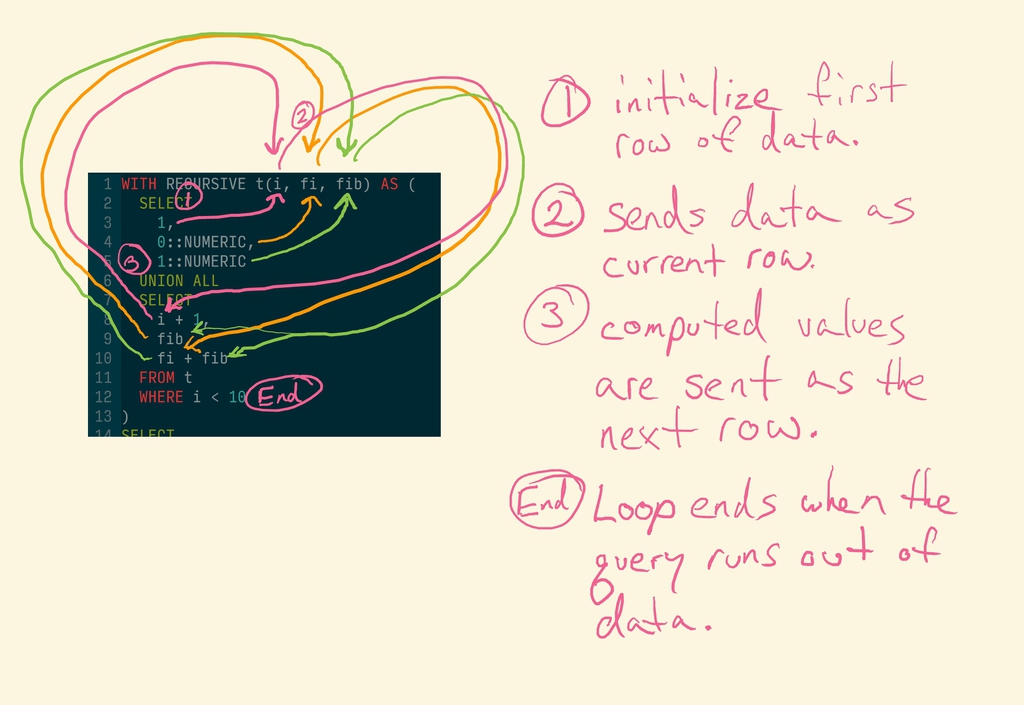 ②
1 WITH RECURSIVE t(i, fi, fib) AS (
2 SELECT ①
3 1,
4 0::NUMERIC,
③
5 1::NUMERIC
6 UNION ALL
7 SELECT
8 i + 1,
9 fib,
10 fi + fib
11 FROM t
12 WHERE i < 10 End
13 )
14 SELECT
① initialize first
row of data.
② Sends data as
current row.
③ computed values
are sent as the
next row.
End Loop ends when the
query runs out of
data.